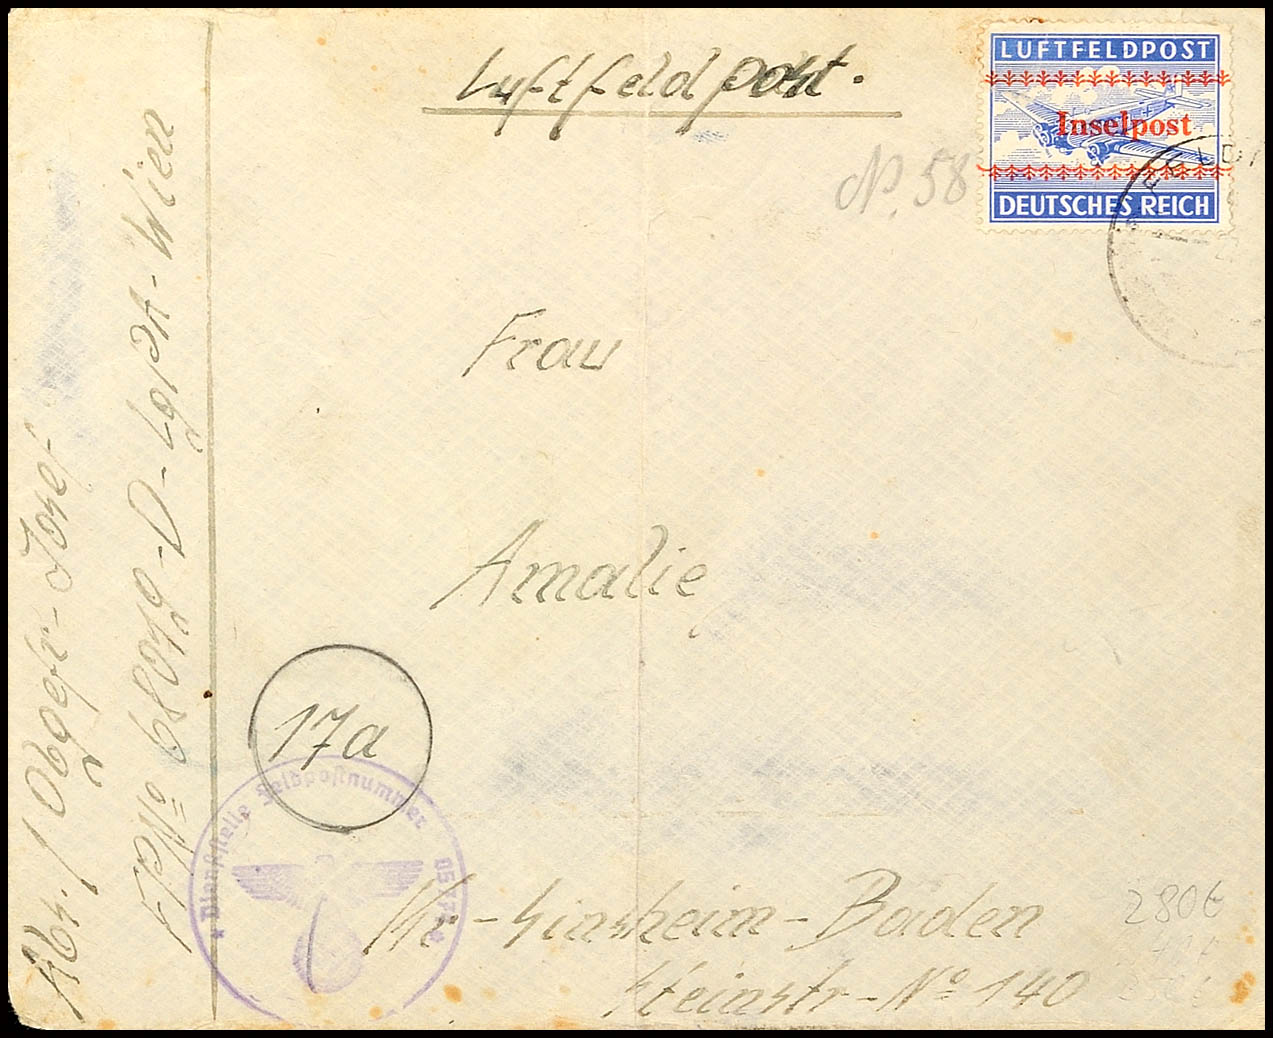 Luftfeldpost.
LUFTFELDPOST
Inselpost
DEUTSCHES REICH
№. 58
Frau
Amalie
17a
Kr-Sinsheim-Baden
Steinstr-№ 140
Abs. / Obgefr-Josef-
FP№ 68079-D-LgPA-Wien
Dienststelle Feldpostnummer
280€